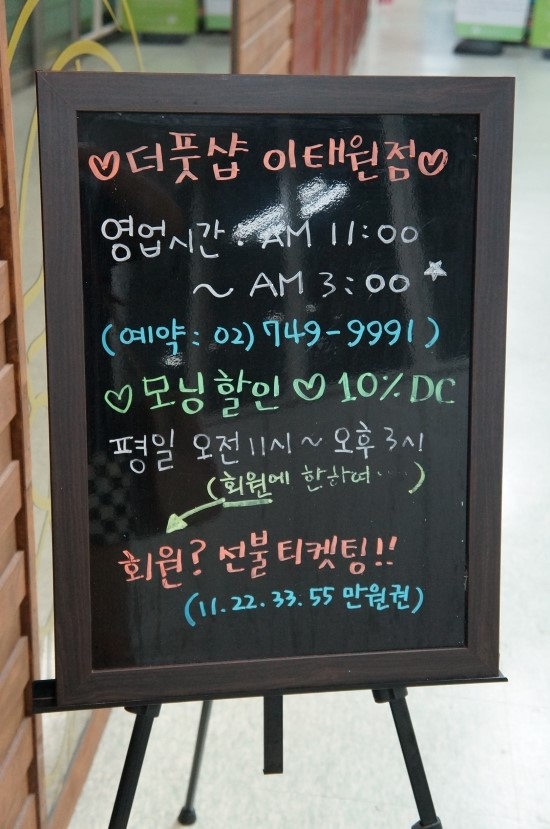 ♡더풋샵 이태원점♡
영업시간 : AM 11:00
~ AM 3:00 ☆
(예약 : 02) 749-9991)
♡모닝할인♡10% DC
평일 오전 11시 ~ 오후 3시
(회원에 한하여····)
회원? 선불티켓팅!!
(11. 22. 33. 55 만원권)